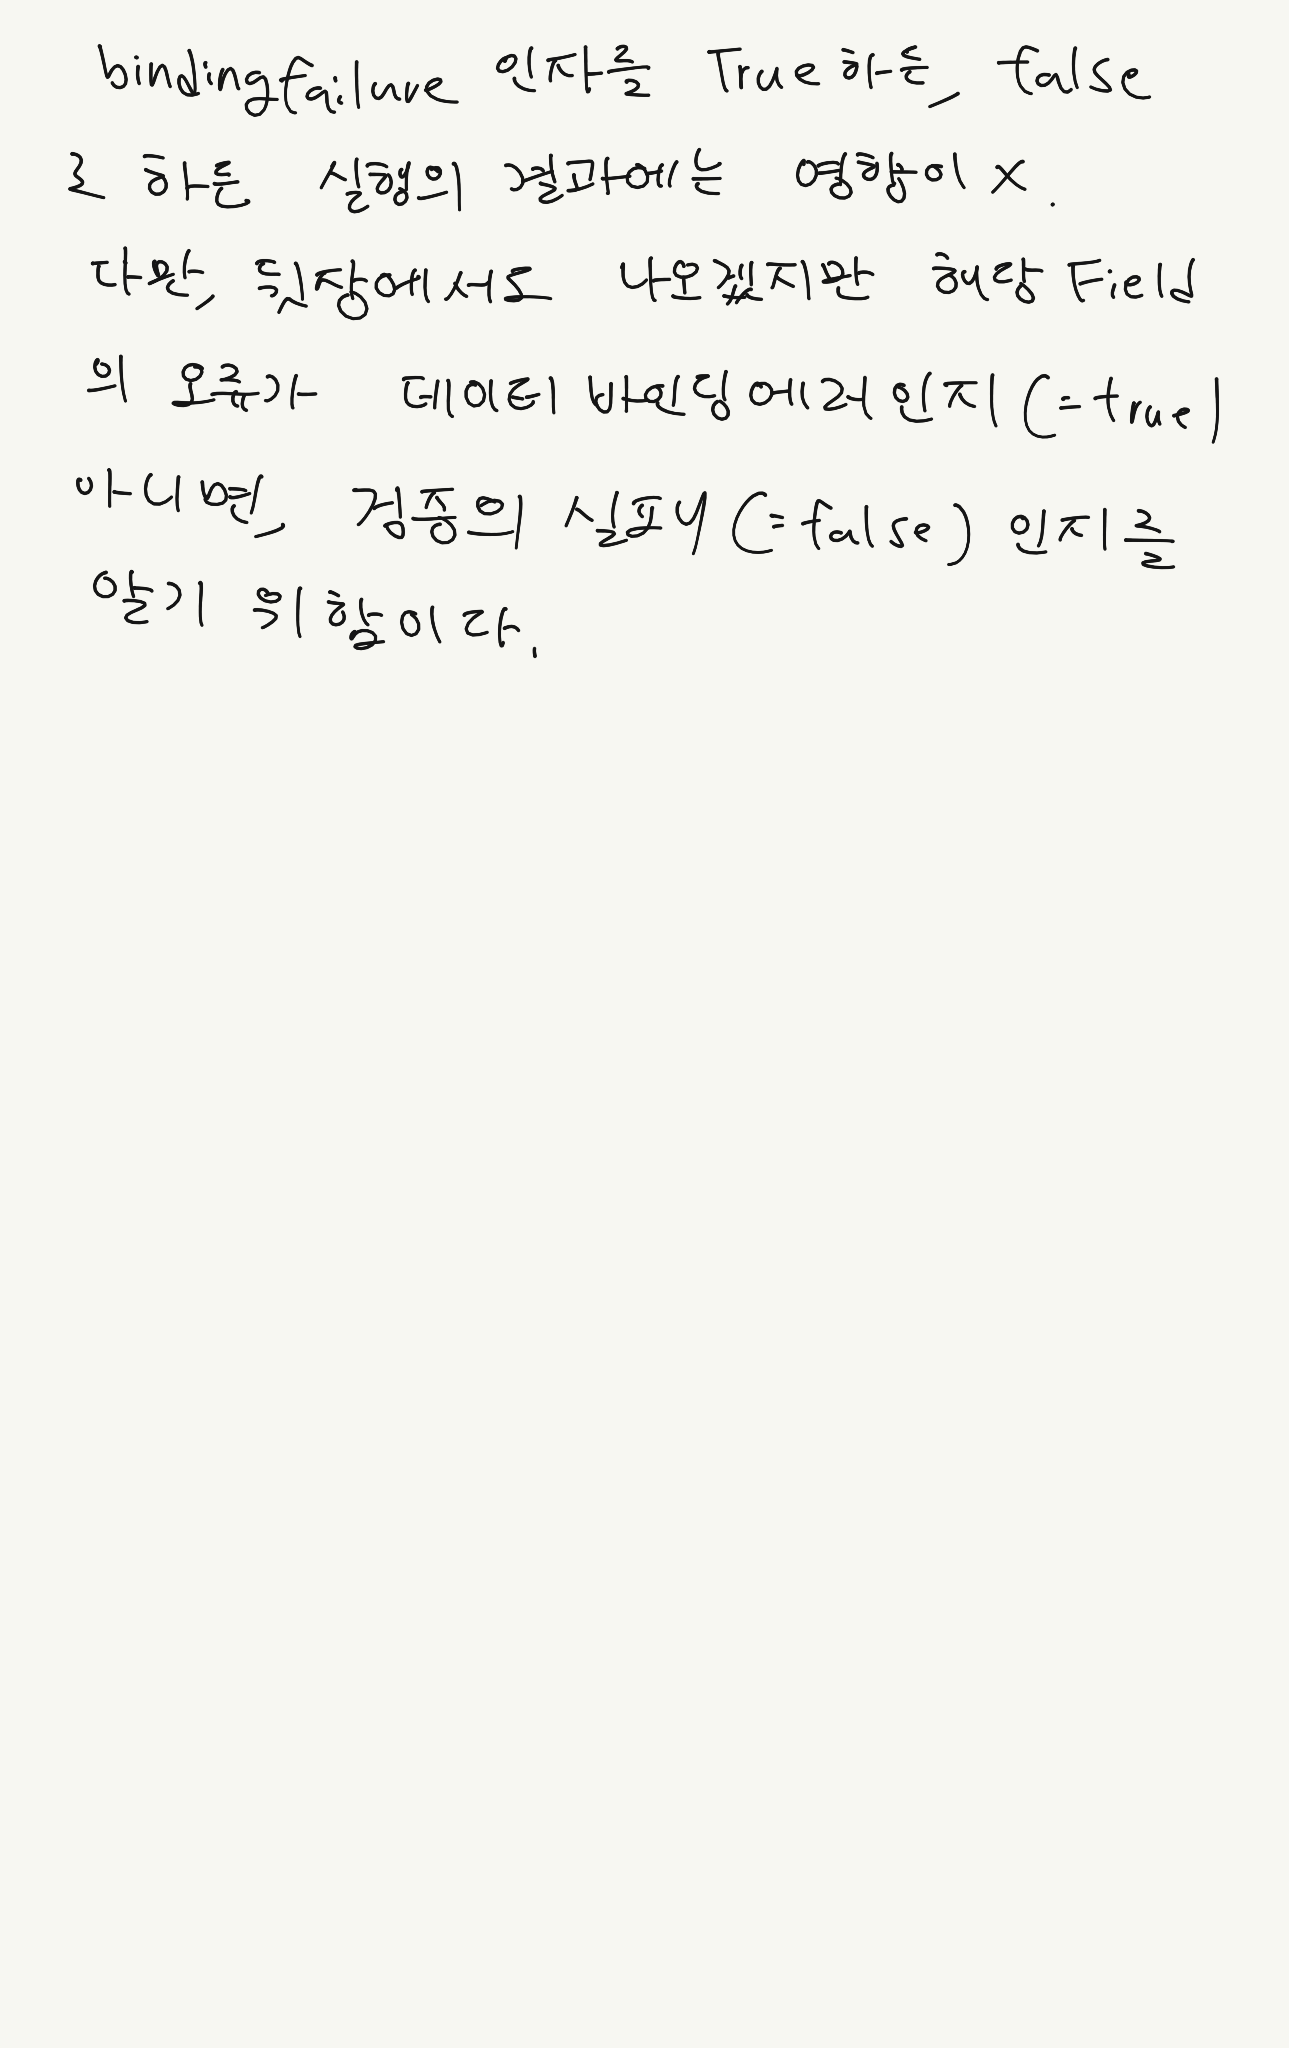 bindingfailure 인자를 True 하든, false
로 하든 실행의 결과에는 영향이 x.
다만, 뒷장에서도 나오겠지만 해당 Field
의 오류가 데이터 바인딩 에러인지 (=true)
아니면, 검증의 실패 (=false) 인지를
알기 위함이다.